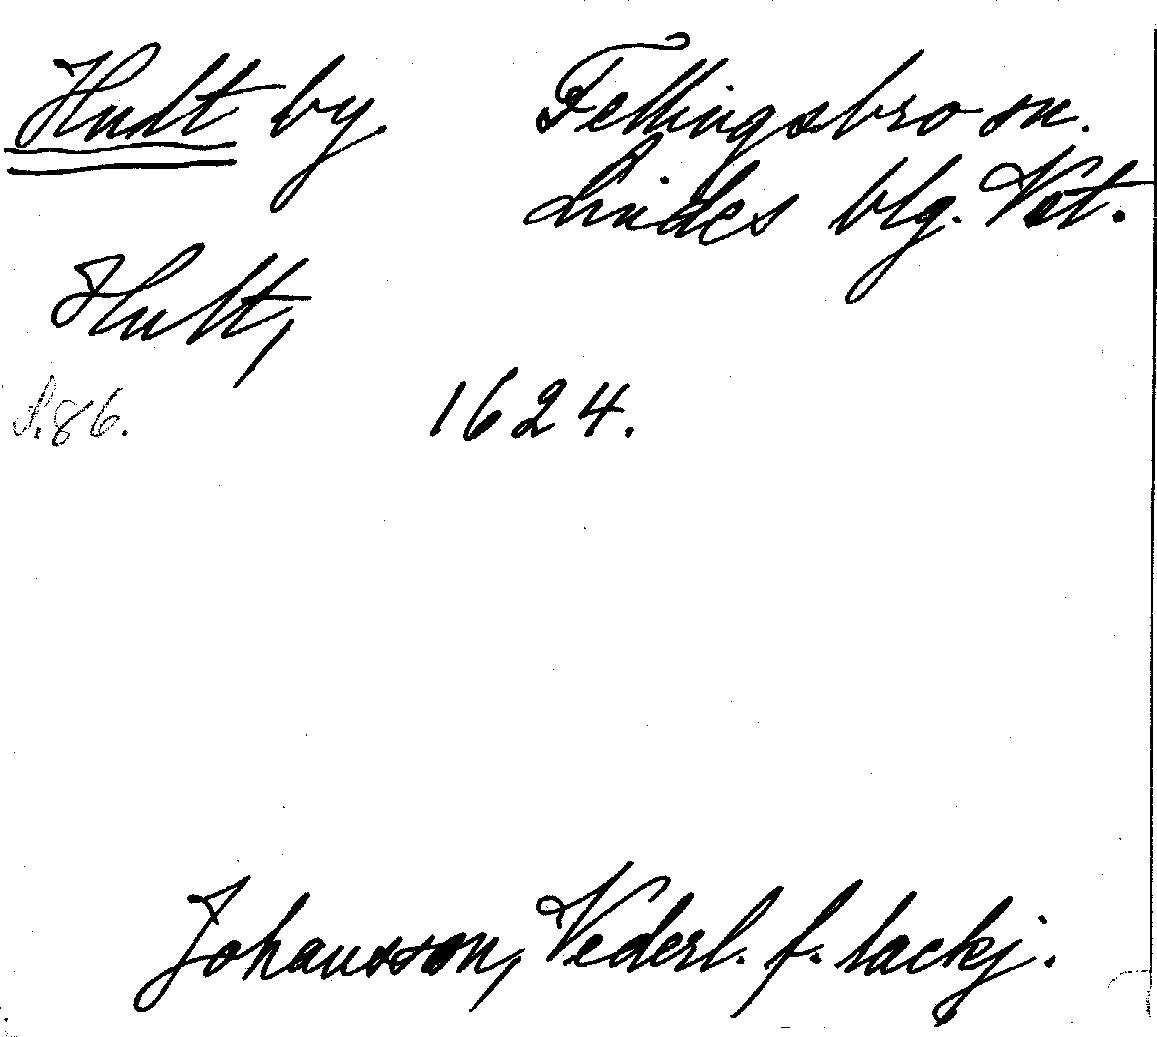 Hult by Fellingsbro sn.
Lindes blg. Vst.
Hult,
S. 86. 1624.
Johansson, Vederl. f. tackj.